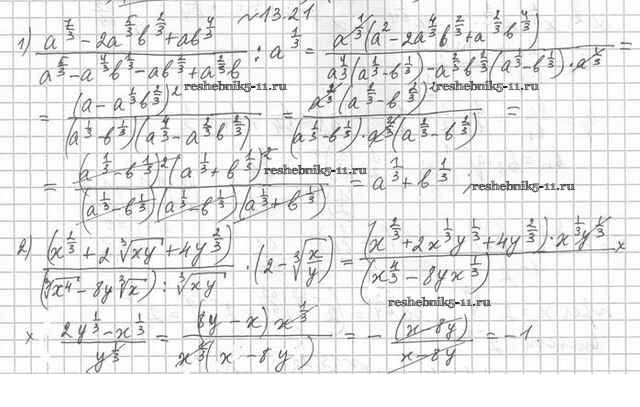 №13.21
1) (a^{7/3} - 2a^{5/3}b^{2/3} + ab^{4/3}) / (a^{5/3} - a^{4/3}b^{1/3} - ab^{2/3} + a^{2/3}b) : a^{1/3} = a^{1/3}(a^2 - 2a^{4/3}b^{2/3} + a^{2/3}b^{4/3}) / (a^{4/3}(a^{1/3} - b^{1/3}) - a^{2/3}b^{2/3}(a^{1/3} - b^{1/3}) · a^{1/3}) =
= (a - a^{1/3}b^{2/3})^2 / ((a^{1/3} - b^{1/3})(a^{4/3} - a^{2/3}b^{2/3})) = a^{2/3}(a^{2/3} - b^{2/3})^2 / ((a^{1/3} - b^{1/3}) · a^{2/3}(a^{2/3} - b^{2/3})) =
reshebnik5-11.ru reshebnik5-11.ru
= (a^{1/3} - b^{1/3})^2 (a^{1/3} + b^{1/3})^2 / ((a^{1/3} - b^{1/3})(a^{1/3} - b^{1/3})(a^{1/3} + b^{1/3})) = a^{1/3} + b^{1/3};
reshebnik5-11.ru
2) (x^{2/3} + 2∛xy + 4y^{2/3}) / ((∛x4 - 8y∛x) : ∛xy) · (2 - ∛(x/y)) = (x^{2/3} + 2x^{1/3}y^{1/3} + 4y^{2/3}) · x^{1/3}y^{1/3} / (x^{4/3} - 8yx^{1/3}) ×
reshebnik5-11.ru
× (2y^{1/3} - x^{1/3}) / y^{1/3} = (8y - x) x^{1/3} / (x^{1/3}(x - 8y)) = - (x - 8y) / (x - 8y) = -1.